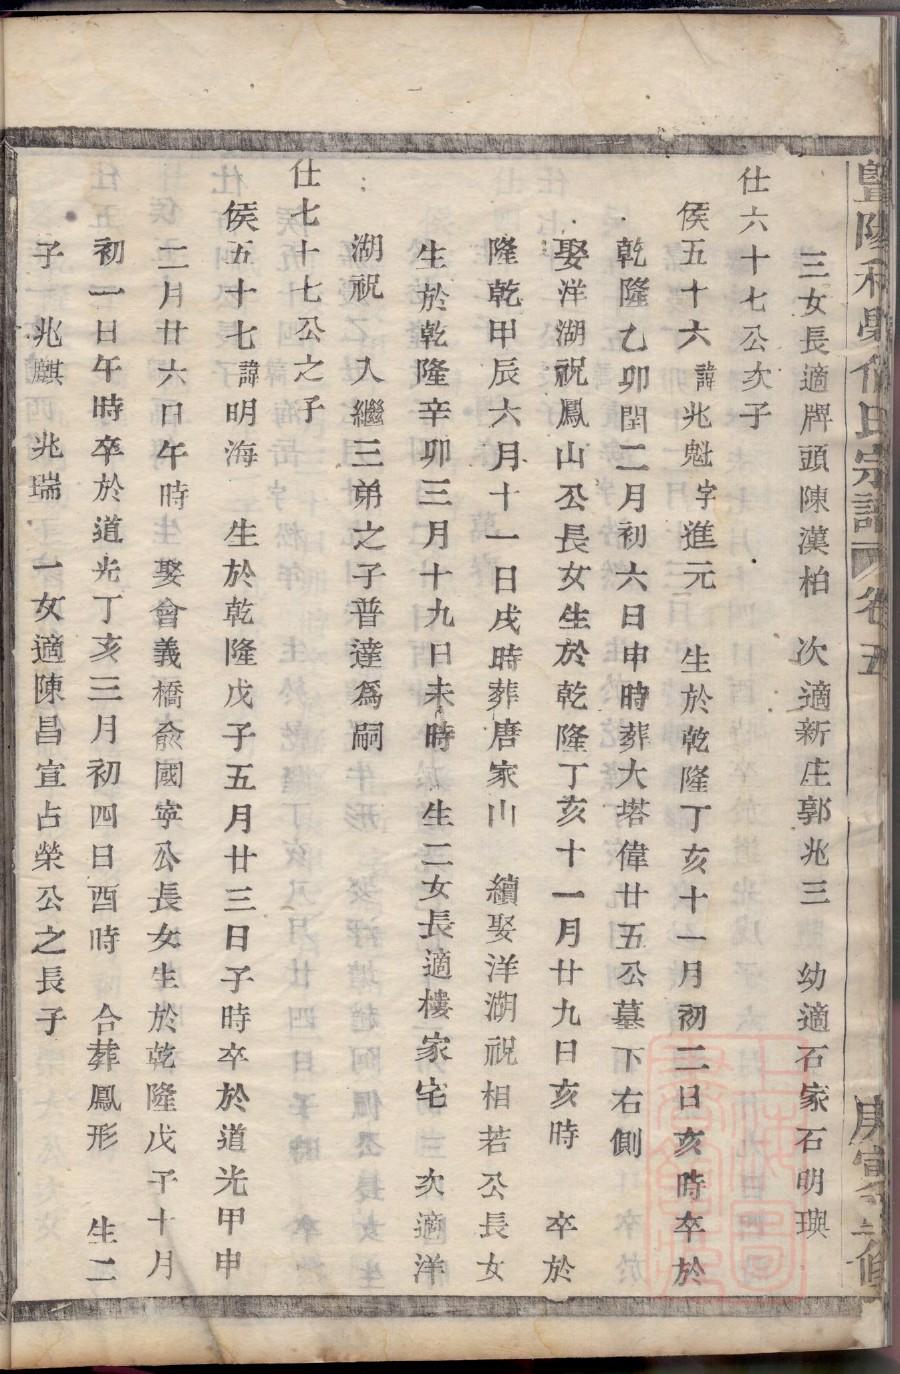 三女長適牌頭陳漢柏　次適新庄郭兆三　幼適石家石明璵
仕六十七公次子
侯五十六諱兆魁字進元　生於乾隆丁亥十一月初二日亥時卒於
乾隆乙卯閏二月初六日申時葬大塔偉廿五公墓下右側
娶洋湖祝鳳山公長女生於乾隆丁亥十一月廿九日亥時　卒於
隆乾甲辰六月十一日戌時葬唐家山　續娶洋湖祝相若公長女
生於乾隆辛卯三月十九日未時　生二女長適樓家宅　次適洋
湖祝　入繼三弟之子普達爲嗣
仕七十七公之子
侯五十七諱明海　生於乾隆戊子五月廿三日子時卒於道光甲申
二月廿六日午時　娶會義橋俞國寧公長女生於乾隆戊子十月
初一日午時卒於道光丁亥三月初四日酉時　合葬鳳形　生二
子　兆麒　兆瑞　一女適陳昌宣占榮公之長子
暨陽　氏宗譜　卷五